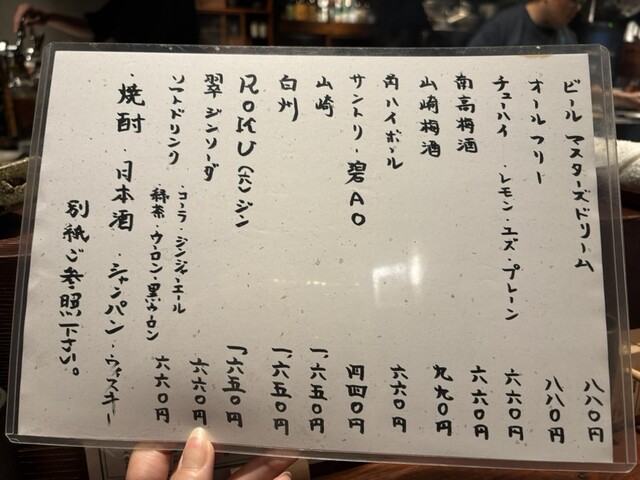 ビール マスターズドリーム 八八〇円
オールフリー 八八〇円
チューハイ ・レモン・ユズ・プレーン 六六〇円
南高梅酒 六六〇円
山崎梅酒 九九〇円
角ハイボール 六六〇円
サントリー碧AO 四四〇円
山崎 一、六五〇円
白州 一、六五〇円
ROKU(六)ジン 一、六五〇円
翠ジンソーダ 六六〇円
ソフトドリンク ・コーラ・ジンジャエール
緑茶・ウーロン・黒ウーロン 六六〇円
・焼酎・日本酒・シャンパン・ウィスキー
別紙ご参照下さい。